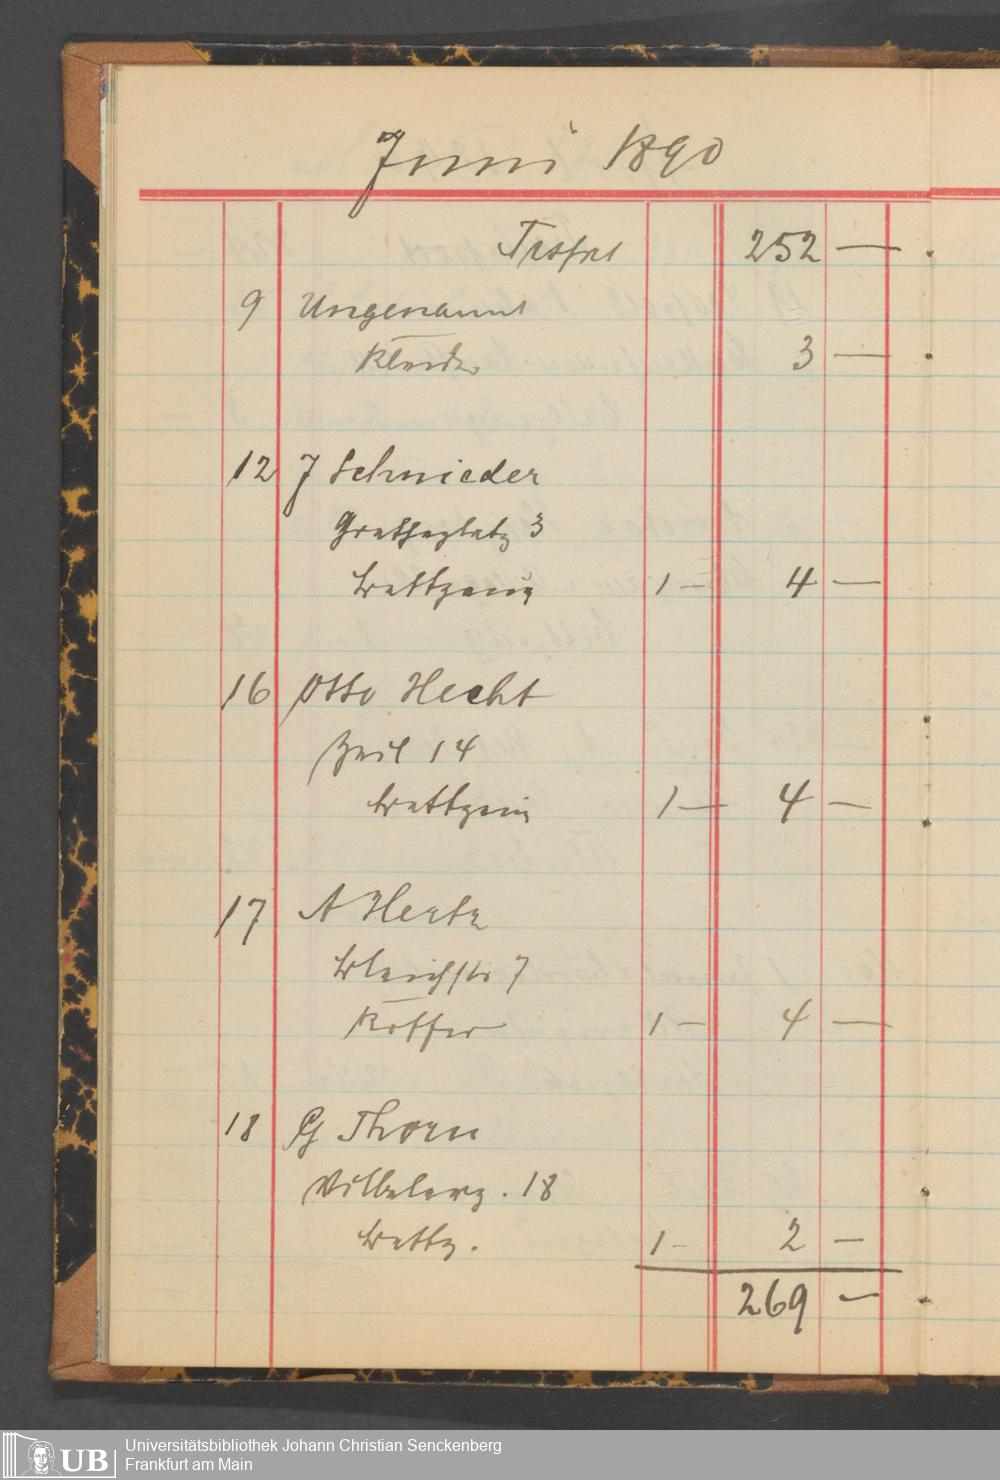 Juni 1890
252 —
9 Ungenannt
Kleider 3 —
12 J Schnieder
Goetheplatz 3
Bettzeug 1 — 4 —
16 Otto Hecht
Zeil 14
Bettzeug 1 — 4 —
17 A Hertz
Bleichstr 7
Koffer 1 — 4 —
18 G Thorn
Vilbelerg. 18
Bettz. 1 — 2 —
269 —
UB
Universitätsbibliothek Johann Christian Senckenberg
Frankfurt am Main